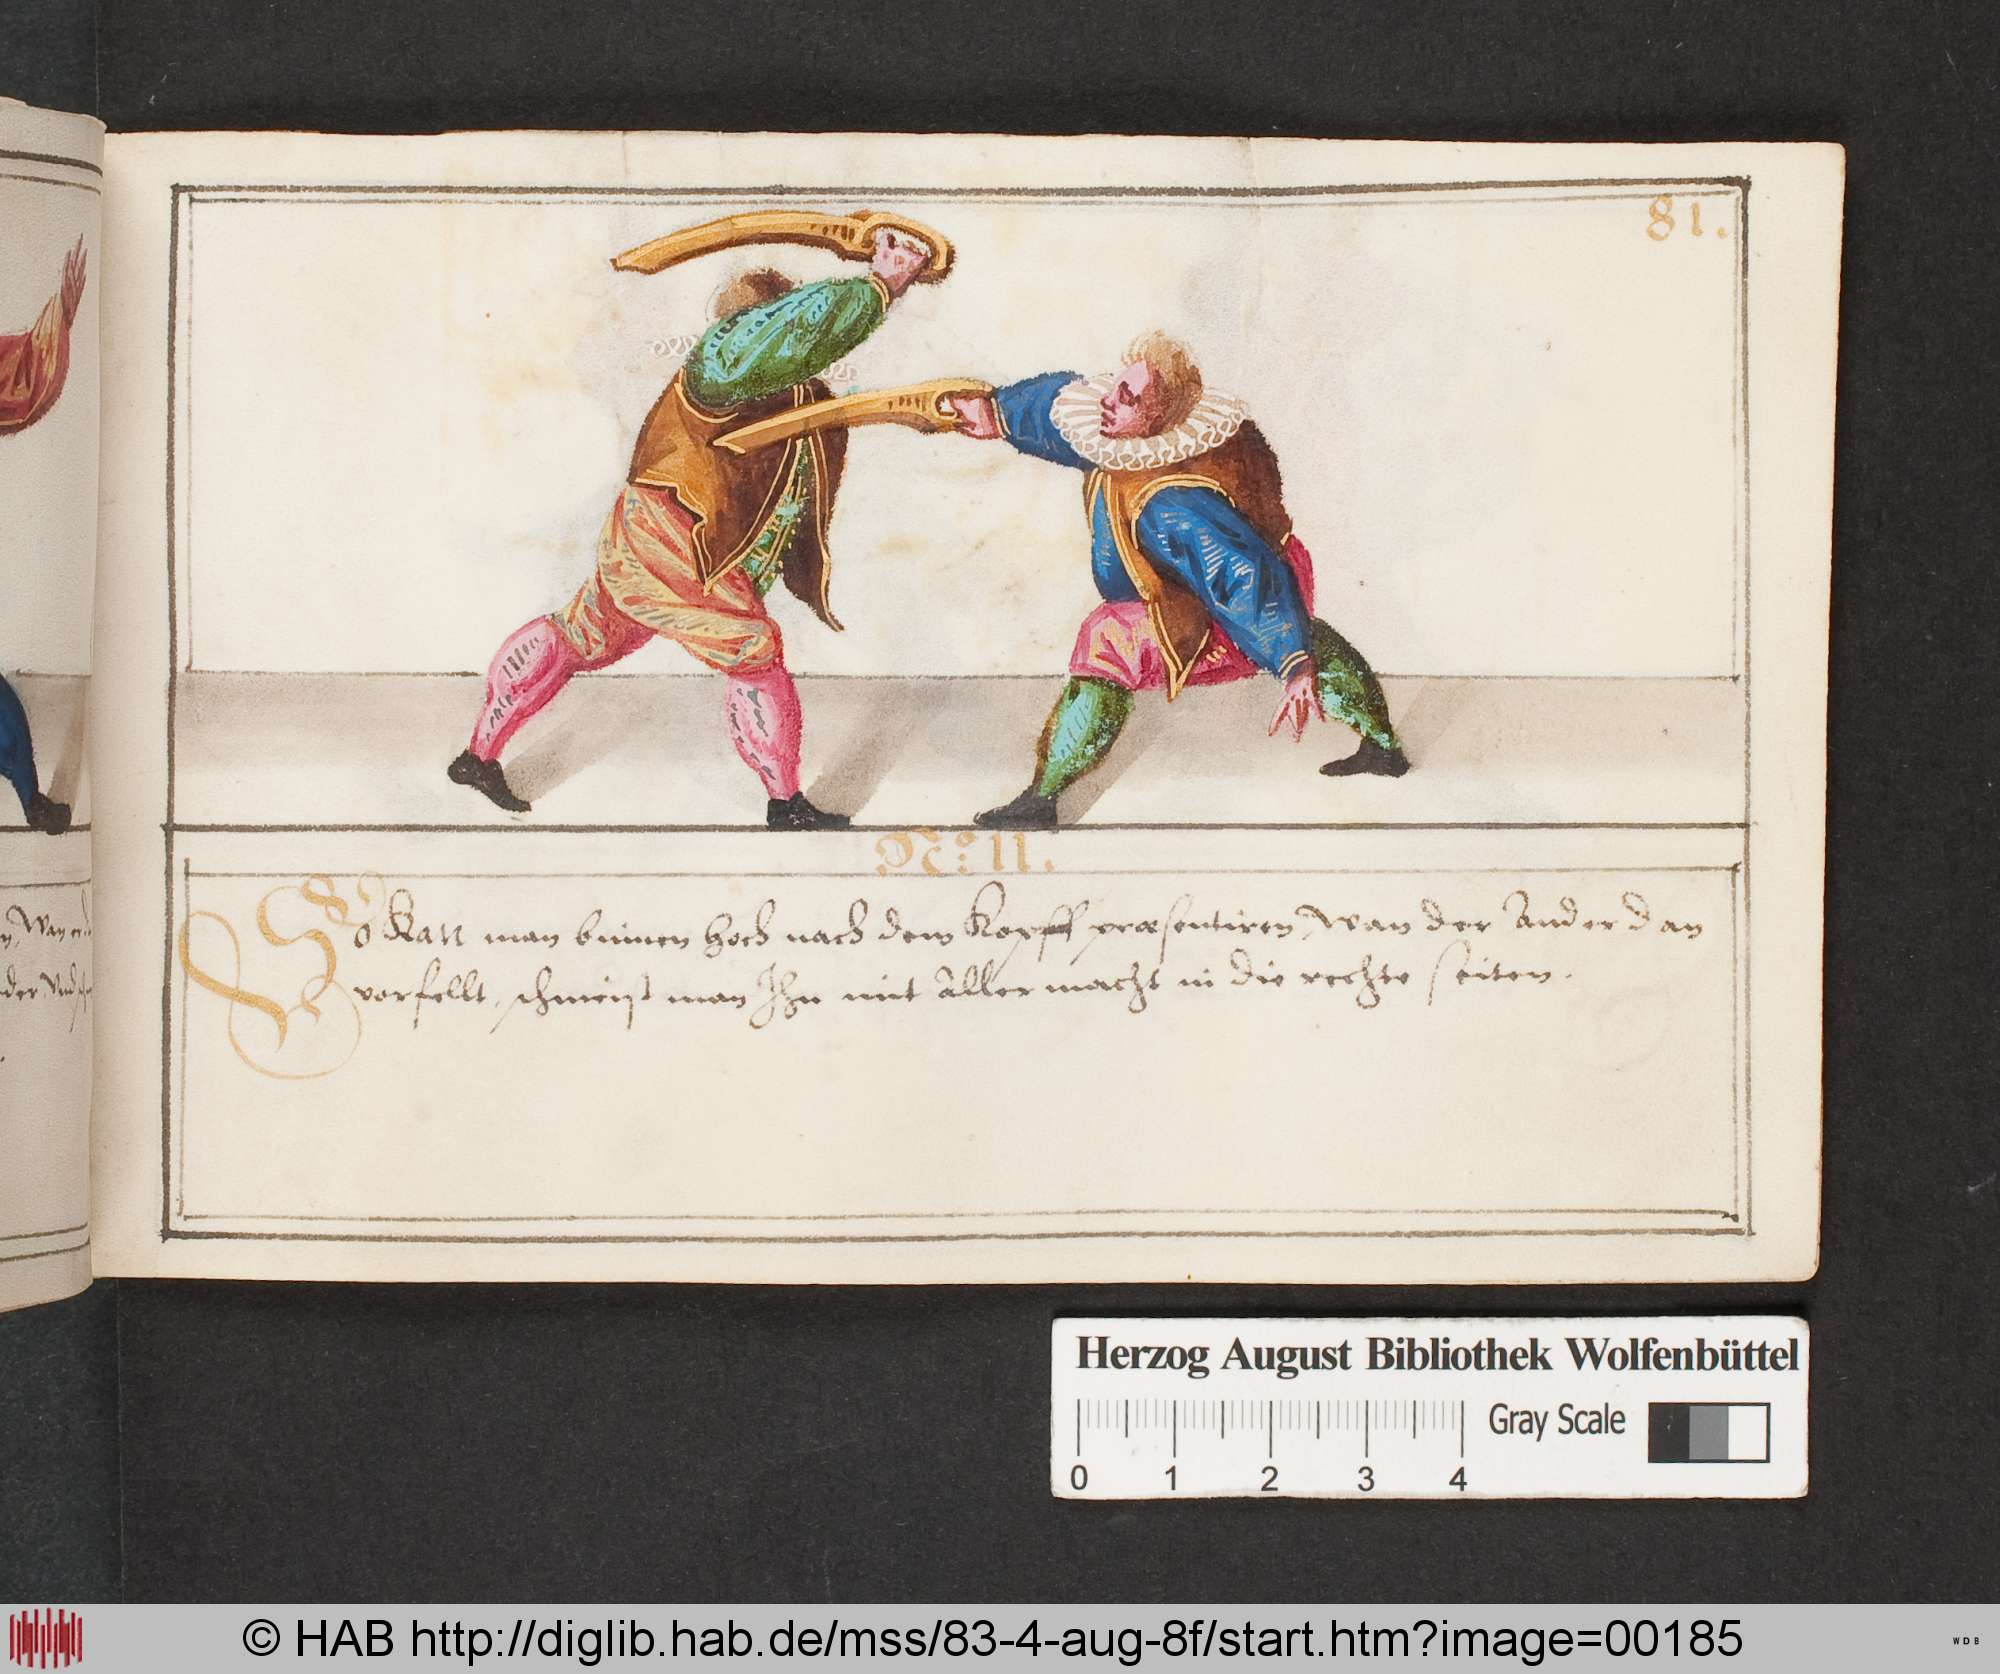 81.
No: 11.
So Kan man binnen hoch nach dem Kopff præsentiren, wan der Ander dan
verfellt, schmeist man Ihn mit Aller macht in die rechte seiten.
Herzog August Bibliothek Wolfenbüttel
Gray Scale
0 1 2 3 4
© HAB http://diglib.hab.de/mss/83-4-aug-8f/start.htm?image=00185
WDB